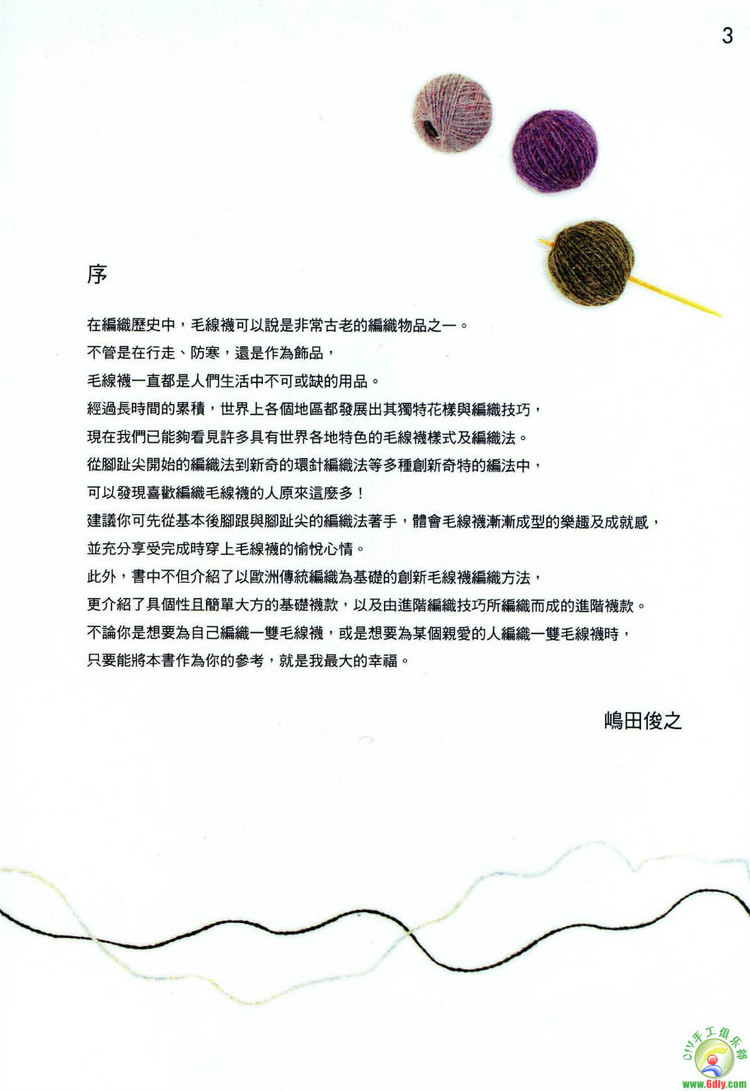 3
序
在編織歷史中，毛線襪可以說是非常古老的編織物品之一。
不管是在行走、防寒，還是作為飾品，
毛線襪一直都是人們生活中不可或缺的用品。
經過長時間的累積，世界上各個地區都發展出其獨特花樣與編織技巧，
現在我們已能夠看見許多具有世界各地特色的毛線襪樣式及編織法。
從腳趾尖開始的編織法到新奇的環針編織法等多種創新奇特的編法中，
可以發現喜歡編織毛線襪的人原來這麼多！
建議你可先從基本後腳跟與腳趾尖的編織法著手，體會毛線襪漸漸成型的樂趣及成就感，
並充分享受完成時穿上毛線襪的愉悅心情。
此外，書中不但介紹了以歐洲傳統編織為基礎的創新毛線襪編織方法，
更介紹了具個性且簡單大方的基礎襪款，以及由進階編織技巧所編織而成的進階襪款。
不論你是想要為自己編織一雙毛線襪，或是想要為某個親愛的人編織一雙毛線襪時，
只要能將本書作為你的參考，就是我最大的幸福。
嶋田俊之
DIY手工俱乐部
www.6diy.com